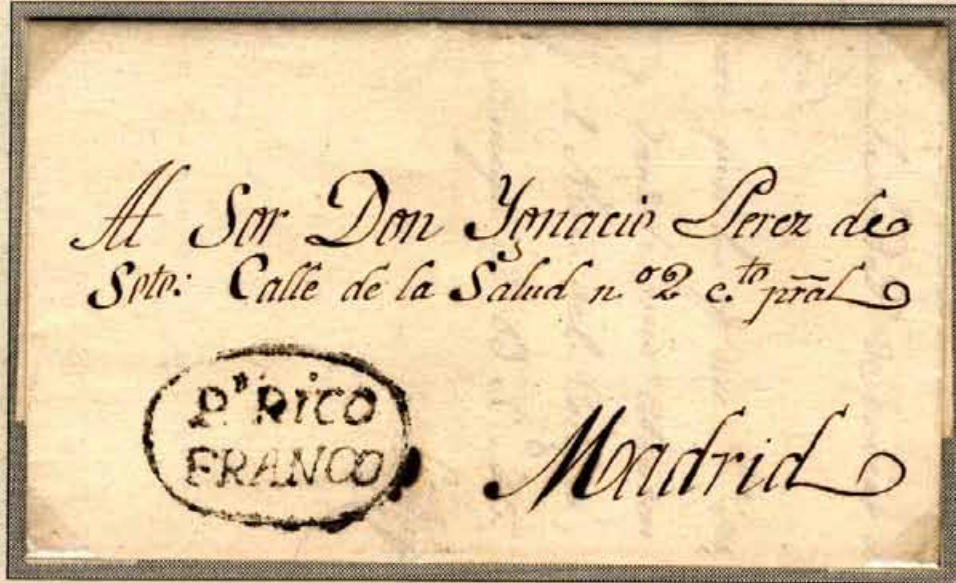 Al Sor Don Ygnacio Perez de
Soto: Calle de la Salud n.º 2 c.to pral
Pto RICO
FRANCO
Madrid